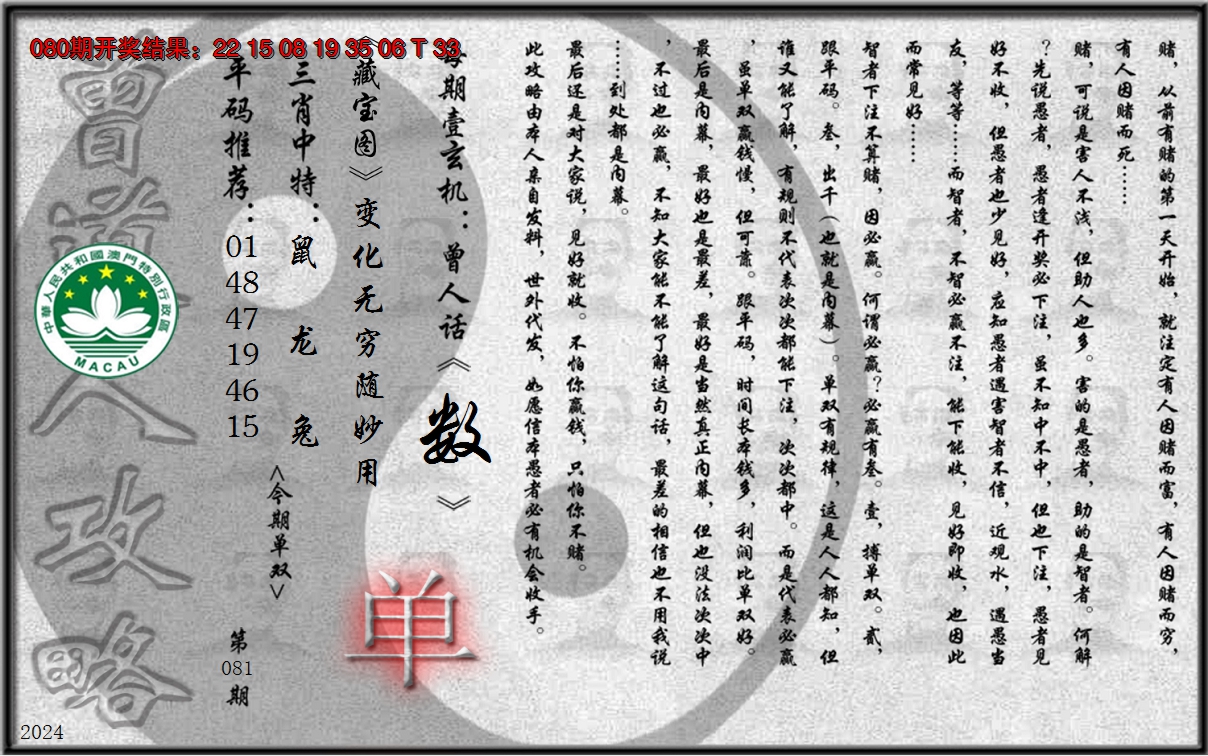 080期开奖结果：22 15 08 19 35 06 T 33
赌，从前有赌的第一天开始，就注定有人因赌而富，有人因赌而穷，
有人因赌而死……
赌，可说是害人不浅，但助人也多。害的是愚者，助的是智者。何解
？先说愚者，愚者逢开奖必下注，虽不知中不中，但也下注，愚者见
好不收，但愚者也少见好，应知愚者遇害智者不信，近观水，遇愚当
友，等等……而智者，不智必赢不注，能下能收，见好即收，也因此
而常见好……
智者下注不算赌，因必赢。何谓必赢？必赢有叁。壹，搏单双。贰，
跟平码。叁，出千（也就是内幕）。单双有规律，这是人人都知，但
谁又能了解，有规则不代表次次都能下注，次次都中。而是代表必赢
，虽单双赢钱慢，但可靠。跟平码，时间长本钱多，利润比单双好。
最后是内幕，最好也是最差，最好是当然真正内幕，但也没法次次中
，不过也必赢，不知大家能不能了解这句话，最差的相信也不用我说
……到处都是内幕。
最后还是对大家说，见好就收。不怕你赢钱，只怕你不赌。
此攻略由本人亲自发料，世外代发，如愿信本愚者必有机会收手。
每期壹玄机：曾人话《数》
《藏宝图》变化无穷随妙用
单
三肖中特：鼠 龙 兔
<今期单双>
平码推荐：01 48 47 19 46 15
第081期
曾道人攻略
中華人民共和國澳門特別行政區
MACAU
2024